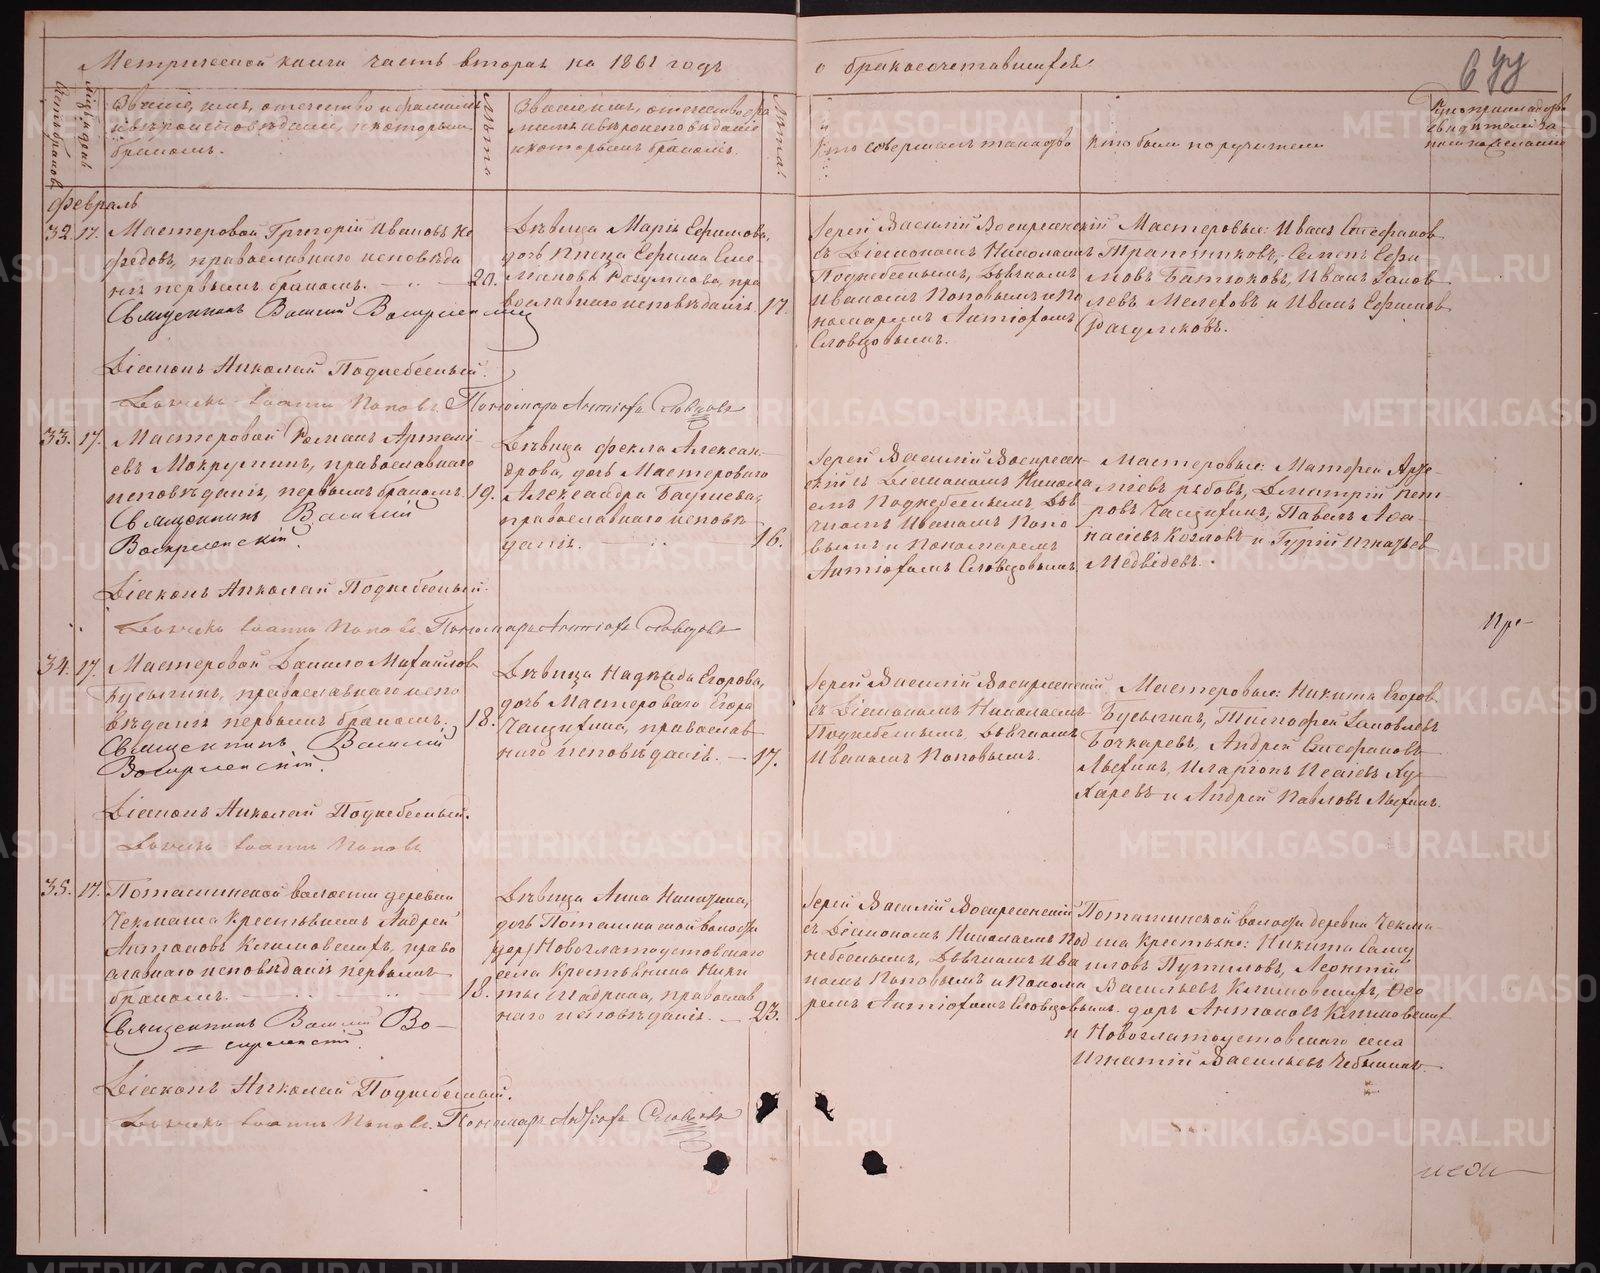 Метрической книги часть вторая на 1861 годъ
о бракосочетавшихся
Счетъ браковъ
Мѣс. и день
Званіе, имя, отечество и фамилія
и вѣроисповѣданіе, и которымъ
бракомъ.
Лѣта
Званіе, имя, отечество, фа
милія и вѣроисповѣданіе
и которымъ бракомъ.
Лѣта
Кто совершалъ таинство
Кто были поручители
Февраль
32. 17. Мастеровой Григорій Ивановъ Не
федовъ, православнаго исповѣда
нія первымъ бракомъ. 20.
Священникъ Василий Воскресенский
Діаконъ Николай Поднебесный.
Дьячекъ Іоаннъ Поповъ. Пономарь Антіохъ Словцовъ
Дѣвица Марія Ефимова,
дочь Ефима Сте
панова православнаго исповѣданія. 17.
Іерей Василій Воскресенскій
съ Діакономъ Николаемъ
Поднебеснымъ, Дьячкомъ
Иваномъ Поповымъ и По
номаремъ Антіохомъ
Словцовымъ.
Мастеровые: Иванъ Стефановъ
Трапезниковъ, Семенъ Ефи
мовъ Батюковъ, Иванъ Іаков
левъ Мелеховъ и Иванъ Ефимовъ
33. 17. Мастеровой Романъ Артемі
евъ Мокрушинъ, православнаго
исповѣданія, первымъ бракомъ. 19.
Священникъ Василий
Воскресенскій.
Діаконъ Николай Поднебесный.
Дьячекъ Іоаннъ Поповъ. Пономарь Антіохъ Словцовъ
Дѣвица Фекла Алексан
дрова, дочь Мастероваго
Александра
православнаго исповѣ
данія. 16.
Іерей Василій Воскресен
скій съ Діакономъ Никола
емъ Поднебеснымъ, Дья
чкомъ Иваномъ Попо
вымъ и Пономаремъ
Антіохомъ Словцовымъ
Мастеровые: Матфей
Рябовъ, Дмитрій Пет
ровъ Чащихинъ, Павелъ Аѳа
насіевъ Козловъ и Гурій Игнатьевъ
Медвѣдевъ.
Пре
34. 17. Мастеровой Данило Михайловъ
Бусыгинъ, православнаго испо
вѣданія первымъ бракомъ. 18.
Священникъ Василий
Воскресенскій.
Діаконъ Николай Поднебесный.
Дьячекъ Іоаннъ Поповъ
Дѣвица Надежда Егорова,
дочь Мастероваго Егора
Чащихина, православ
наго исповѣданія. 17.
Іерей Василій Воскресенскій
съ Діакономъ Николаемъ
Поднебеснымъ, Дьячкомъ
Иваномъ Поповымъ.
Мастеровые: Никита Егоровъ
Бусыгинъ, Тимофей Іаковлевъ
Бочкаревъ, Андрей Стефановъ
Иларіонъ Исаіевъ Ку
харевъ и Андрей Павловъ
35. 17. Поташинской волости деревни
Чекмаша Крестьянинъ Андрей
Антоновъ Климовскихъ, право
славнаго исповѣданія первымъ
бракомъ. 18.
Священникъ Василий Во
скресенскій.
Діаконъ Николай Поднебесный.
Дьячекъ Іоаннъ Поповъ. Пономарь Антіохъ Словцовъ
Дѣвица Анна Никитина,
дочь Поташинской волости
Новозлатоустовскаго
села Крестьянина Ники
ты Шадрина, православ
наго исповѣданія. 23.
Іерей Василій Воскресенскій
съ Діакономъ Николаемъ Под
небеснымъ, Дьячкомъ Ива
номъ Поповымъ и Понома
ремъ Антіохомъ Словцовымъ.
Поташинской волости деревни Чекма
ша Крестьяне: Никита Саму
иловъ Путиловъ, Леонтій
Васильевъ Климовскихъ, Ѳео
доръ Антоновъ Климовских
и Новозлатоустовскаго села
Игнатій Васильевъ